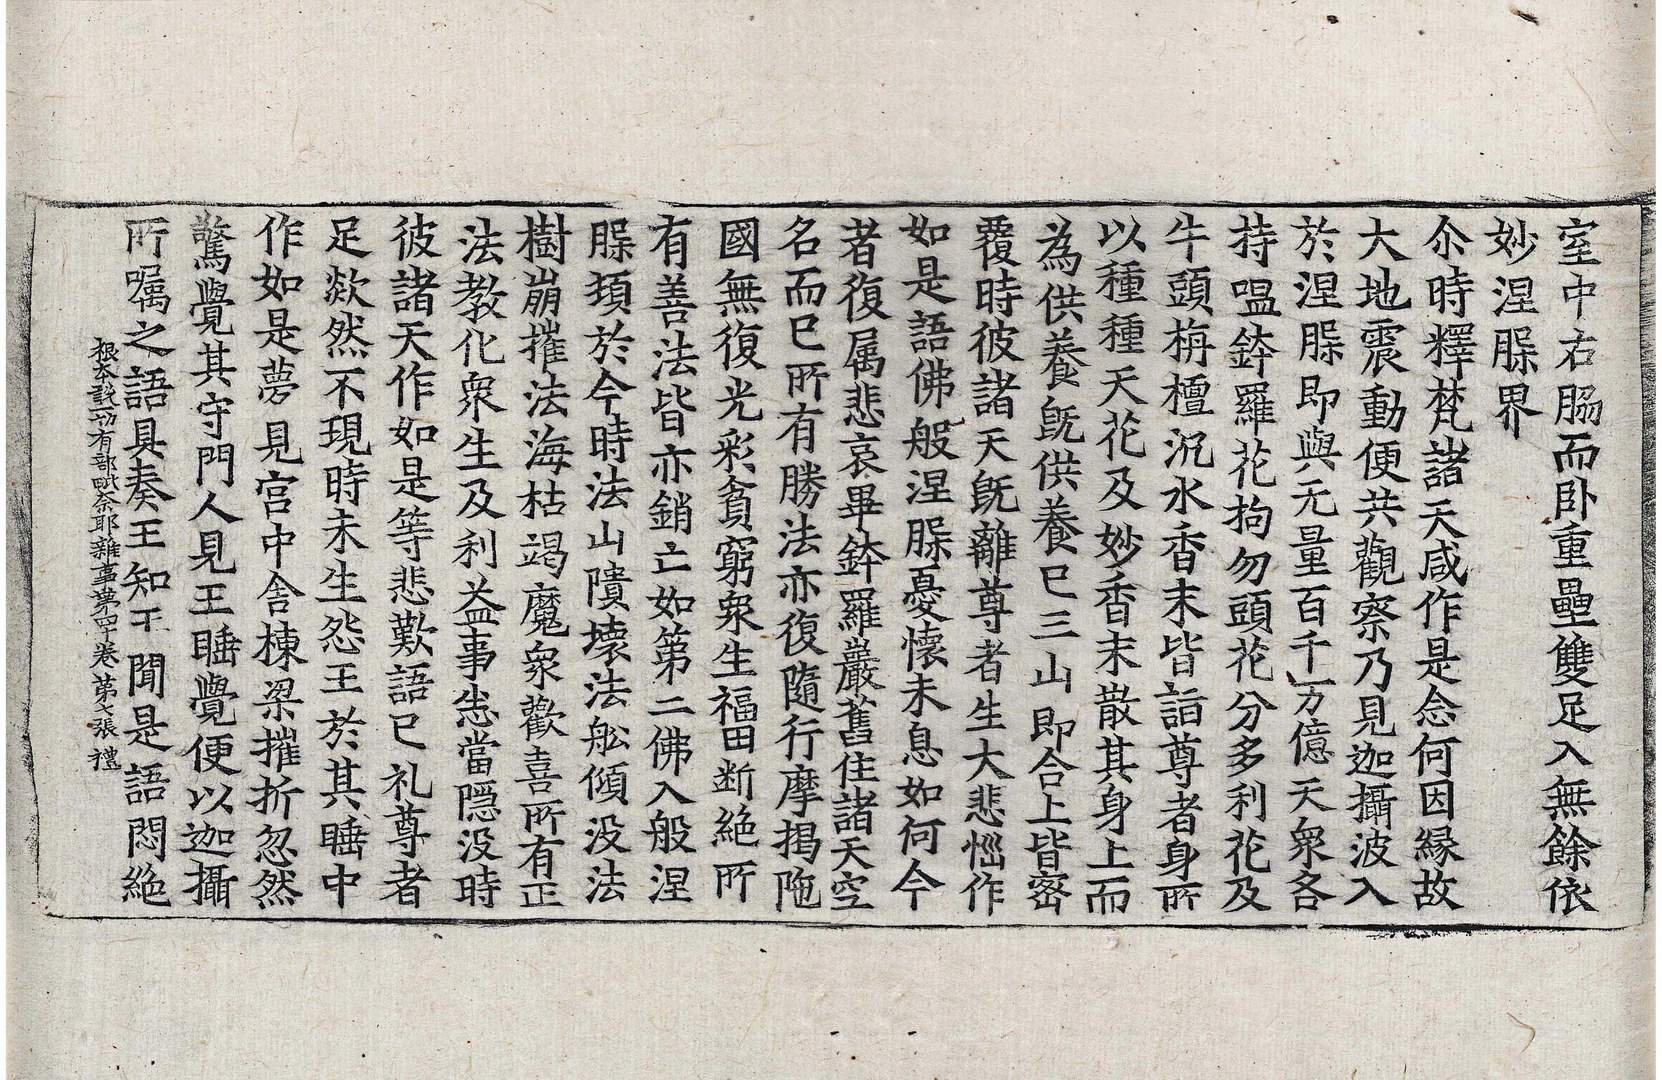 室中右脇而卧重壘雙足入無餘依
妙涅槃界
尒時釋梵諸天咸作是念何因縁故
大地震動便共觀察乃見迦攝波入
於涅槃即與无量百千万億天衆各
持嗢鉢羅花拘勿頭花分多利花及
牛頭栴檀沉水香末皆詣尊者身所
以種種天花及妙香末散其身上而
為供養既供養已三山即合上皆密
覆時彼諸天既離尊者生大悲惱作
如是語佛般涅槃憂懷未息如何今
者復属悲哀畢鉢羅巖舊住諸天空
名而已所有勝法亦復隨行摩揭陁
國無復光彩貧窮衆生福田断絶所
有善法皆亦銷亡如第二佛入般涅
槃頊於今時法山隤壊法舩傾没法
樹崩摧法海枯竭魔衆歡喜所有正
法教化衆生及利益事悉當隠没時
彼諸天作如是等悲歎語已礼尊者
足欻然不現時未生怨王於其睡中
作如是夢見宫中舍棟梁摧折忽然
驚覺其守門人見王睡覺便以迦攝
所嘱之語具奏王知王聞是語悶絶
根本說一切有部毗奈耶雜事第四十卷 第七張 禮